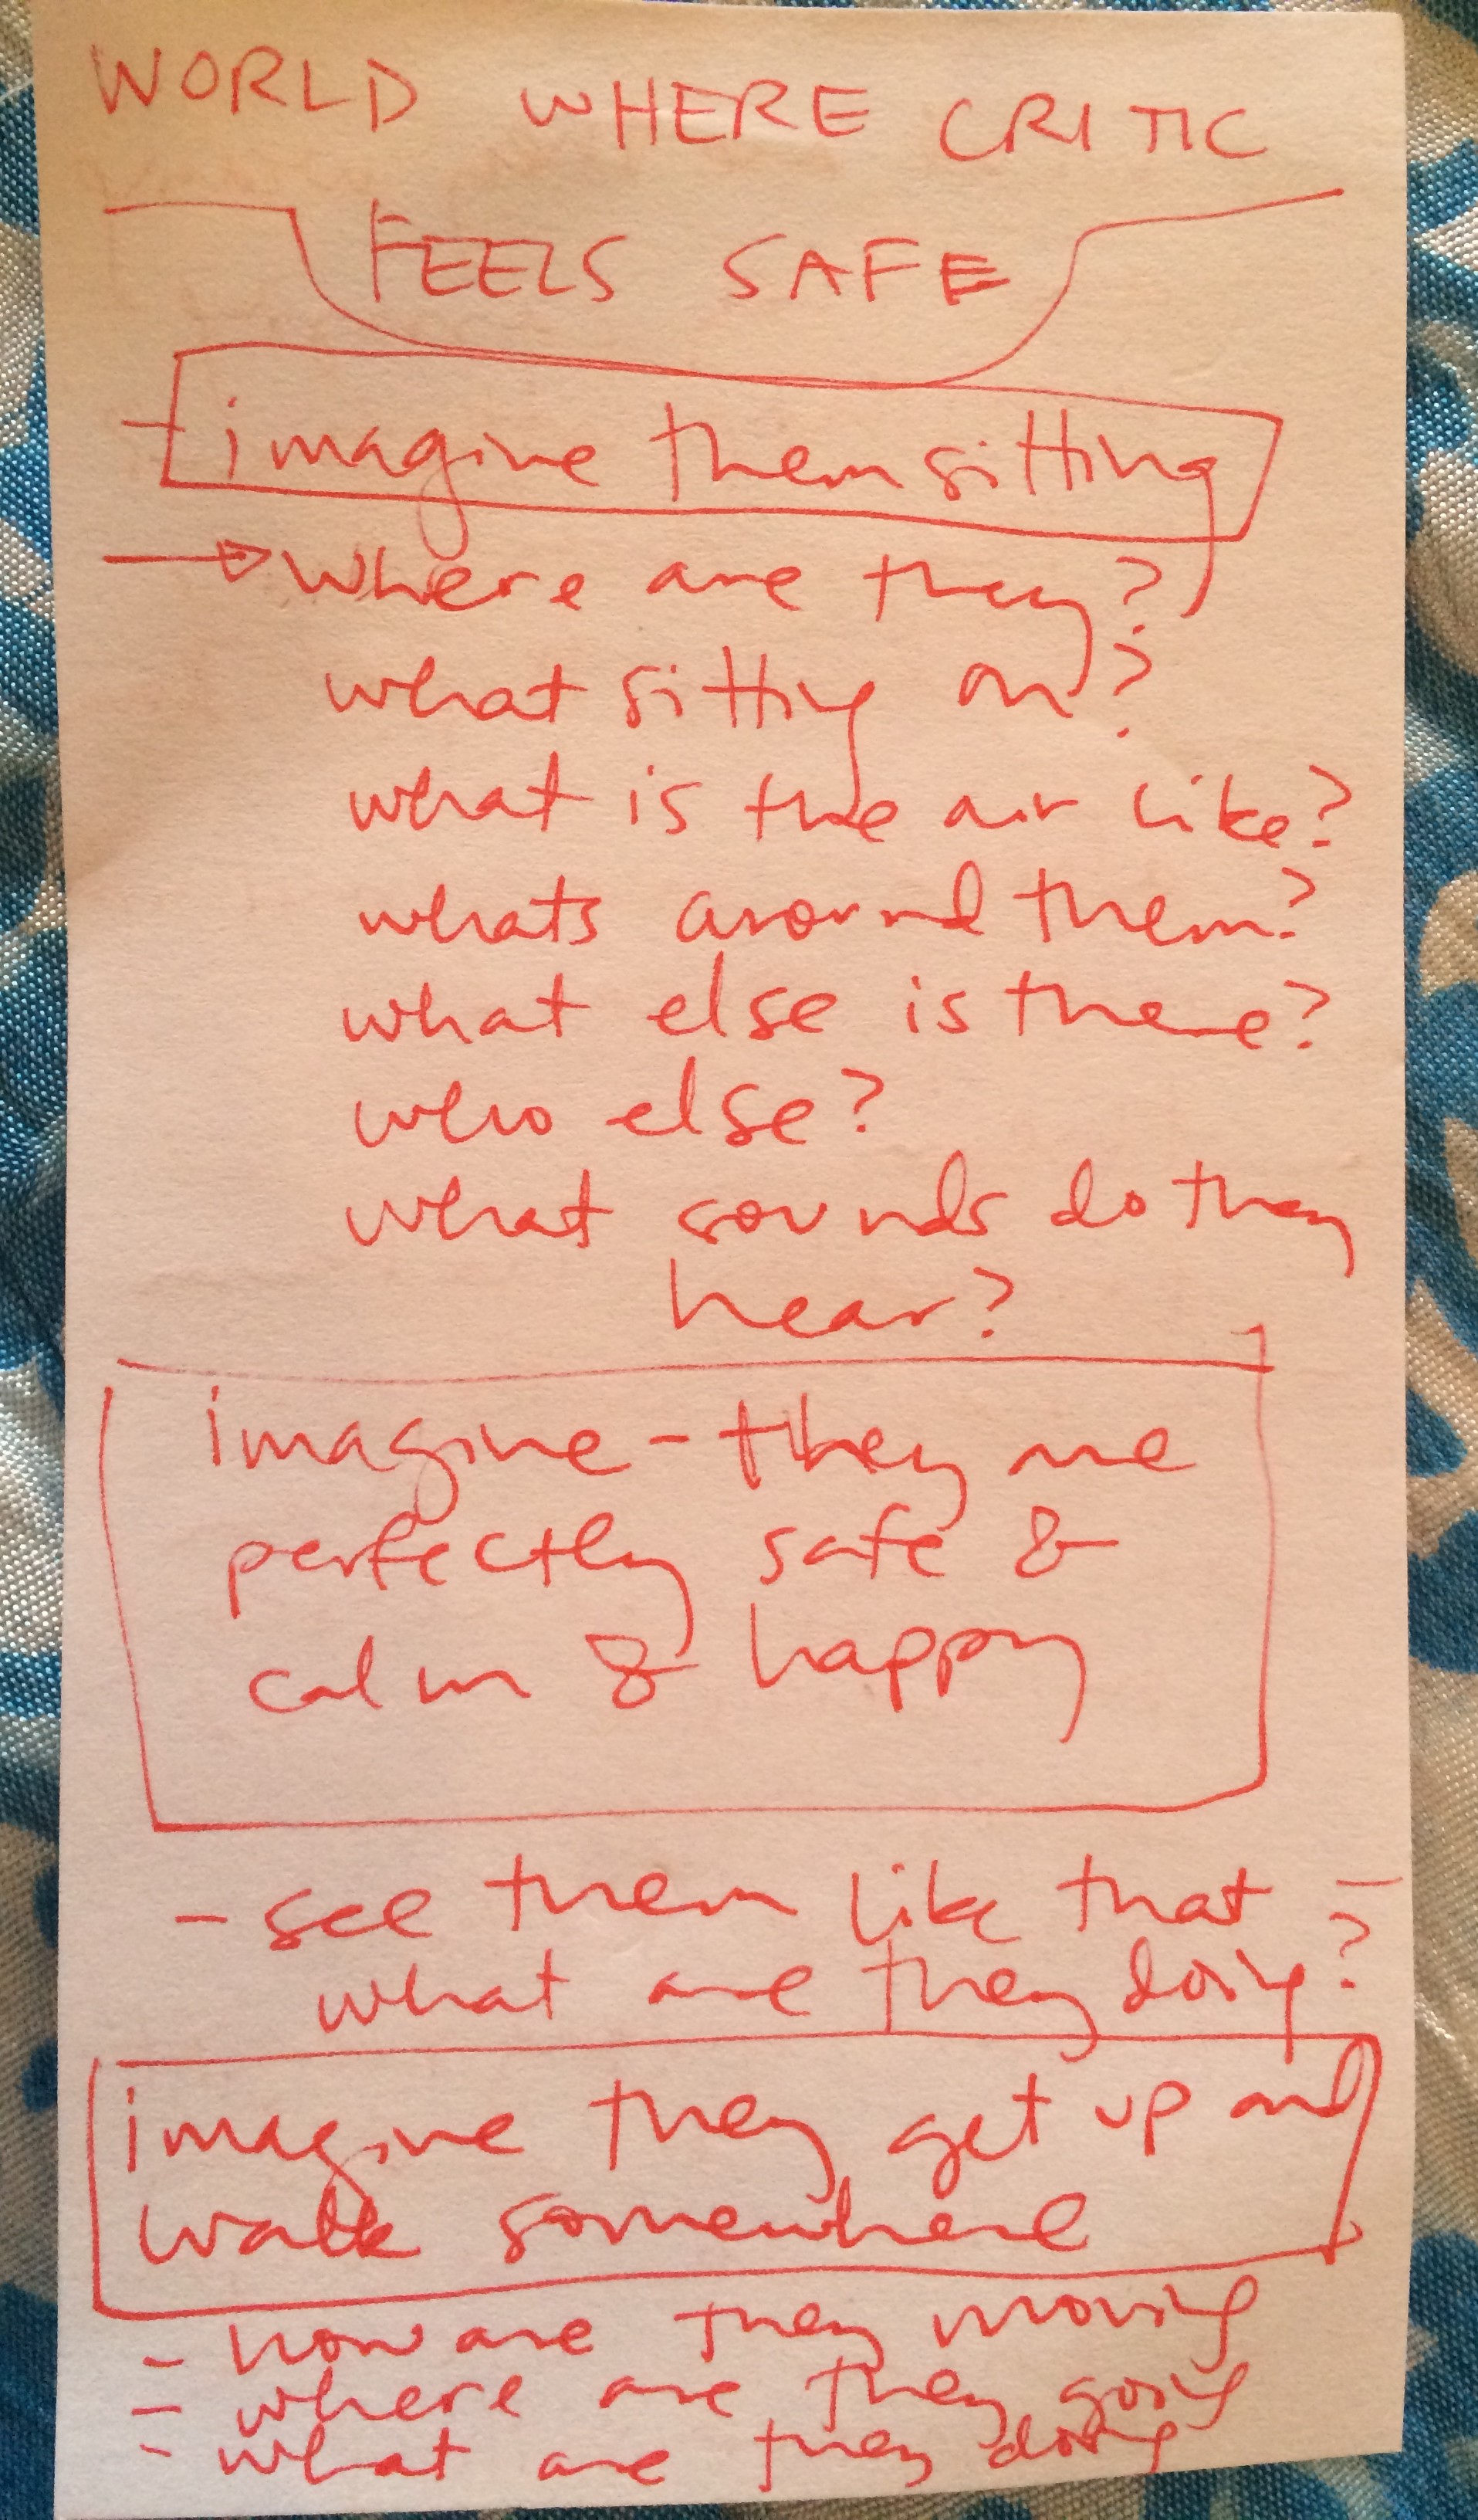 WORLD WHERE CRITIC
FEELS SAFE
- imagine them sitting
→ where are they?
what sitting on?
what is the air like?
whats around them?
what else is there?
who else?
what sounds do they
hear?
imagine - they are
perfectly safe &
calm & happy
- see them like that -
what are they doing?
imagine they get up and
walk somewhere
- how are they moving
- where are they going
- what are they doing